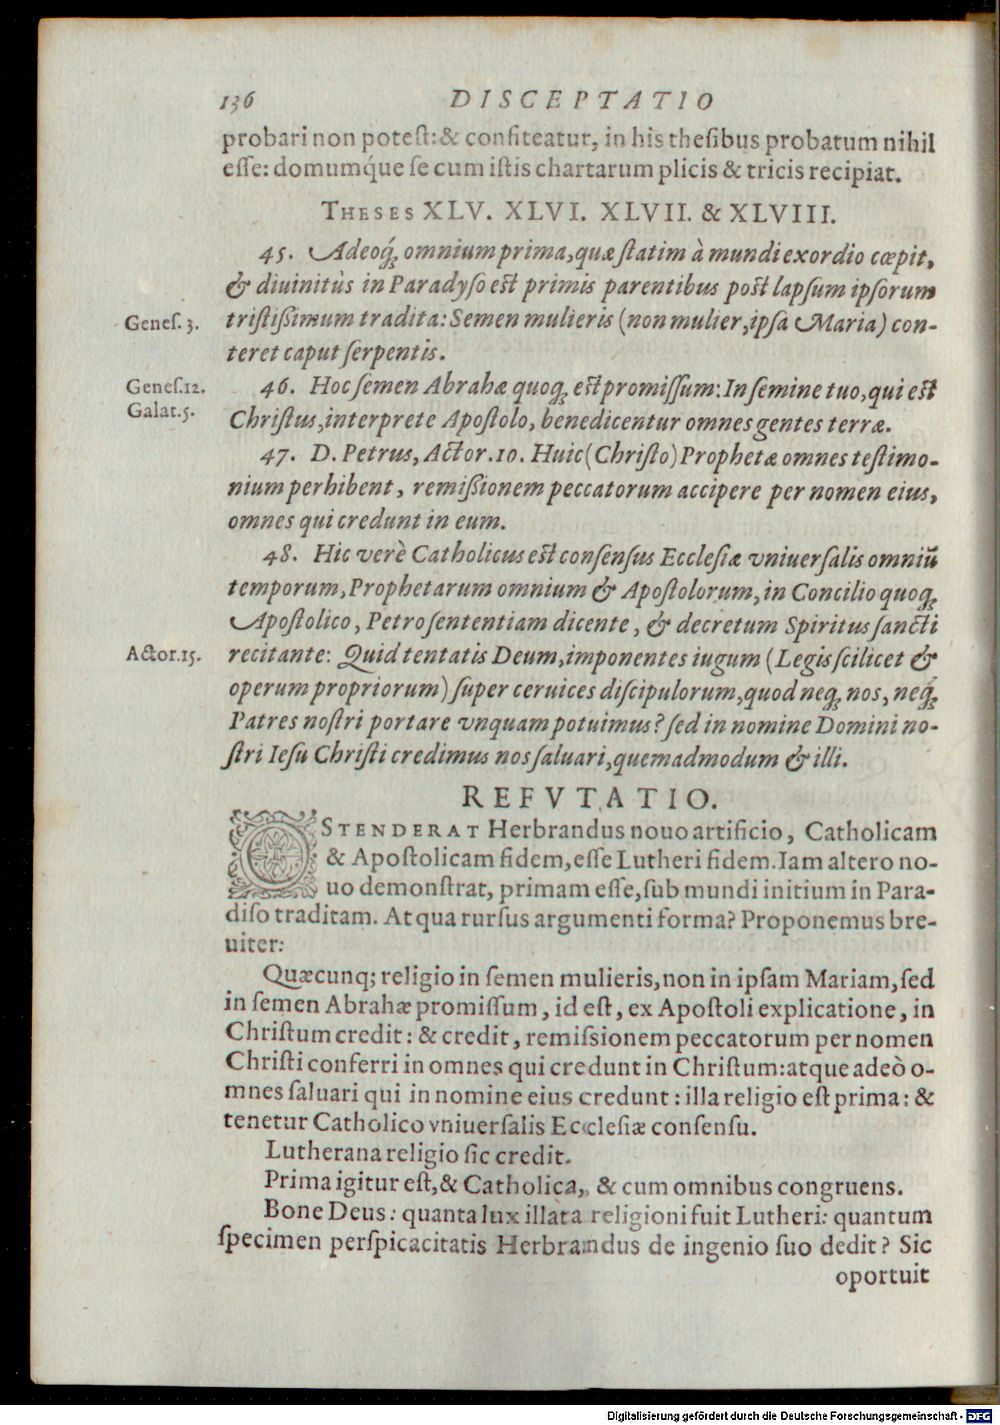 136 DISCEPTATIO
probari non poteſt: & confiteatur, in his theſibus probatum nihil
eſſe: domumq́ue ſe cum iſtis chartarum plicis & tricis recipiat.
THESES XLV. XLVI. XLVII. & XLVIII.
45. Adeoq́; omnium prima, quæ ſtatim à mundi exordio cœpit,
& diuinitùs in Paradyſo eſt primis parentibus poſt lapſum ipſorum
Geneſ. 3. triſtißimum tradita: Semen mulieris (non mulier, ipſa Maria) con-
teret caput ſerpentis.
Geneſ. 12. 46. Hoc ſemen Abrahæ quoq; eſt promiſſum: In ſemine tuo, qui eſt
Galat. 5. Chriſtus, interprete Apoſtolo, benedicentur omnes gentes terræ.
47. D. Petrus, Actor. 10. Huic (Chriſto) Prophetæ omnes teſtimo-
nium perhibent, remißionem peccatorum accipere per nomen eius,
omnes qui credunt in eum.
48. Hic verè Catholicus eſt conſenſus Eccleſiæ vniuerſalis omniũ
temporum, Prophetarum omnium & Apoſtolorum, in Concilio quoq;
Apoſtolico, Petro ſententiam dicente, & decretum Spiritus ſancti
Actor. 15. recitante: Quid tentatis Deum, imponentes iugum (Legis ſcilicet &
operum propriorum) ſuper ceruices diſcipulorum, quod neq; nos, neq́;
Patres noſtri portare vnquam potuimus? ſed in nomine Domini no-
ſtri Ieſu Chriſti credimus nos ſaluari, quemadmodum & illi.
REFVTATIO.
OSTENDERAT Herbrandus nouo artificio, Catholicam
& Apoſtolicam fidem, eſſe Lutheri fidem. Iam altero no-
uo demonſtrat, primam eſſe, ſub mundi initium in Para-
diſo traditam. At qua rurſus argumenti forma? Proponemus bre-
uiter:
Quæcunq; religio in ſemen mulieris, non in ipſam Mariam, ſed
in ſemen Abrahæ promiſſum, id eſt, ex Apoſtoli explicatione, in
Chriſtum credit: & credit, remiſsionem peccatorum per nomen
Chriſti conferri in omnes qui credunt in Chriſtum: atque adeò o-
mnes ſaluari qui in nomine eius credunt: illa religio eſt prima: &
tenetur Catholico vniuerſalis Eccleſiæ conſenſu.
Lutherana religio ſic credit.
Prima igitur eſt, & Catholica, & cum omnibus congruens.
Bone Deus: quanta lux illata religioni fuit Lutheri: quantum
ſpecimen perſpicacitatis Herbrandus de ingenio ſuo dedit? Sic
oportuit
Digitalisierung gefördert durch die Deutsche Forschungsgemeinschaft - DFG